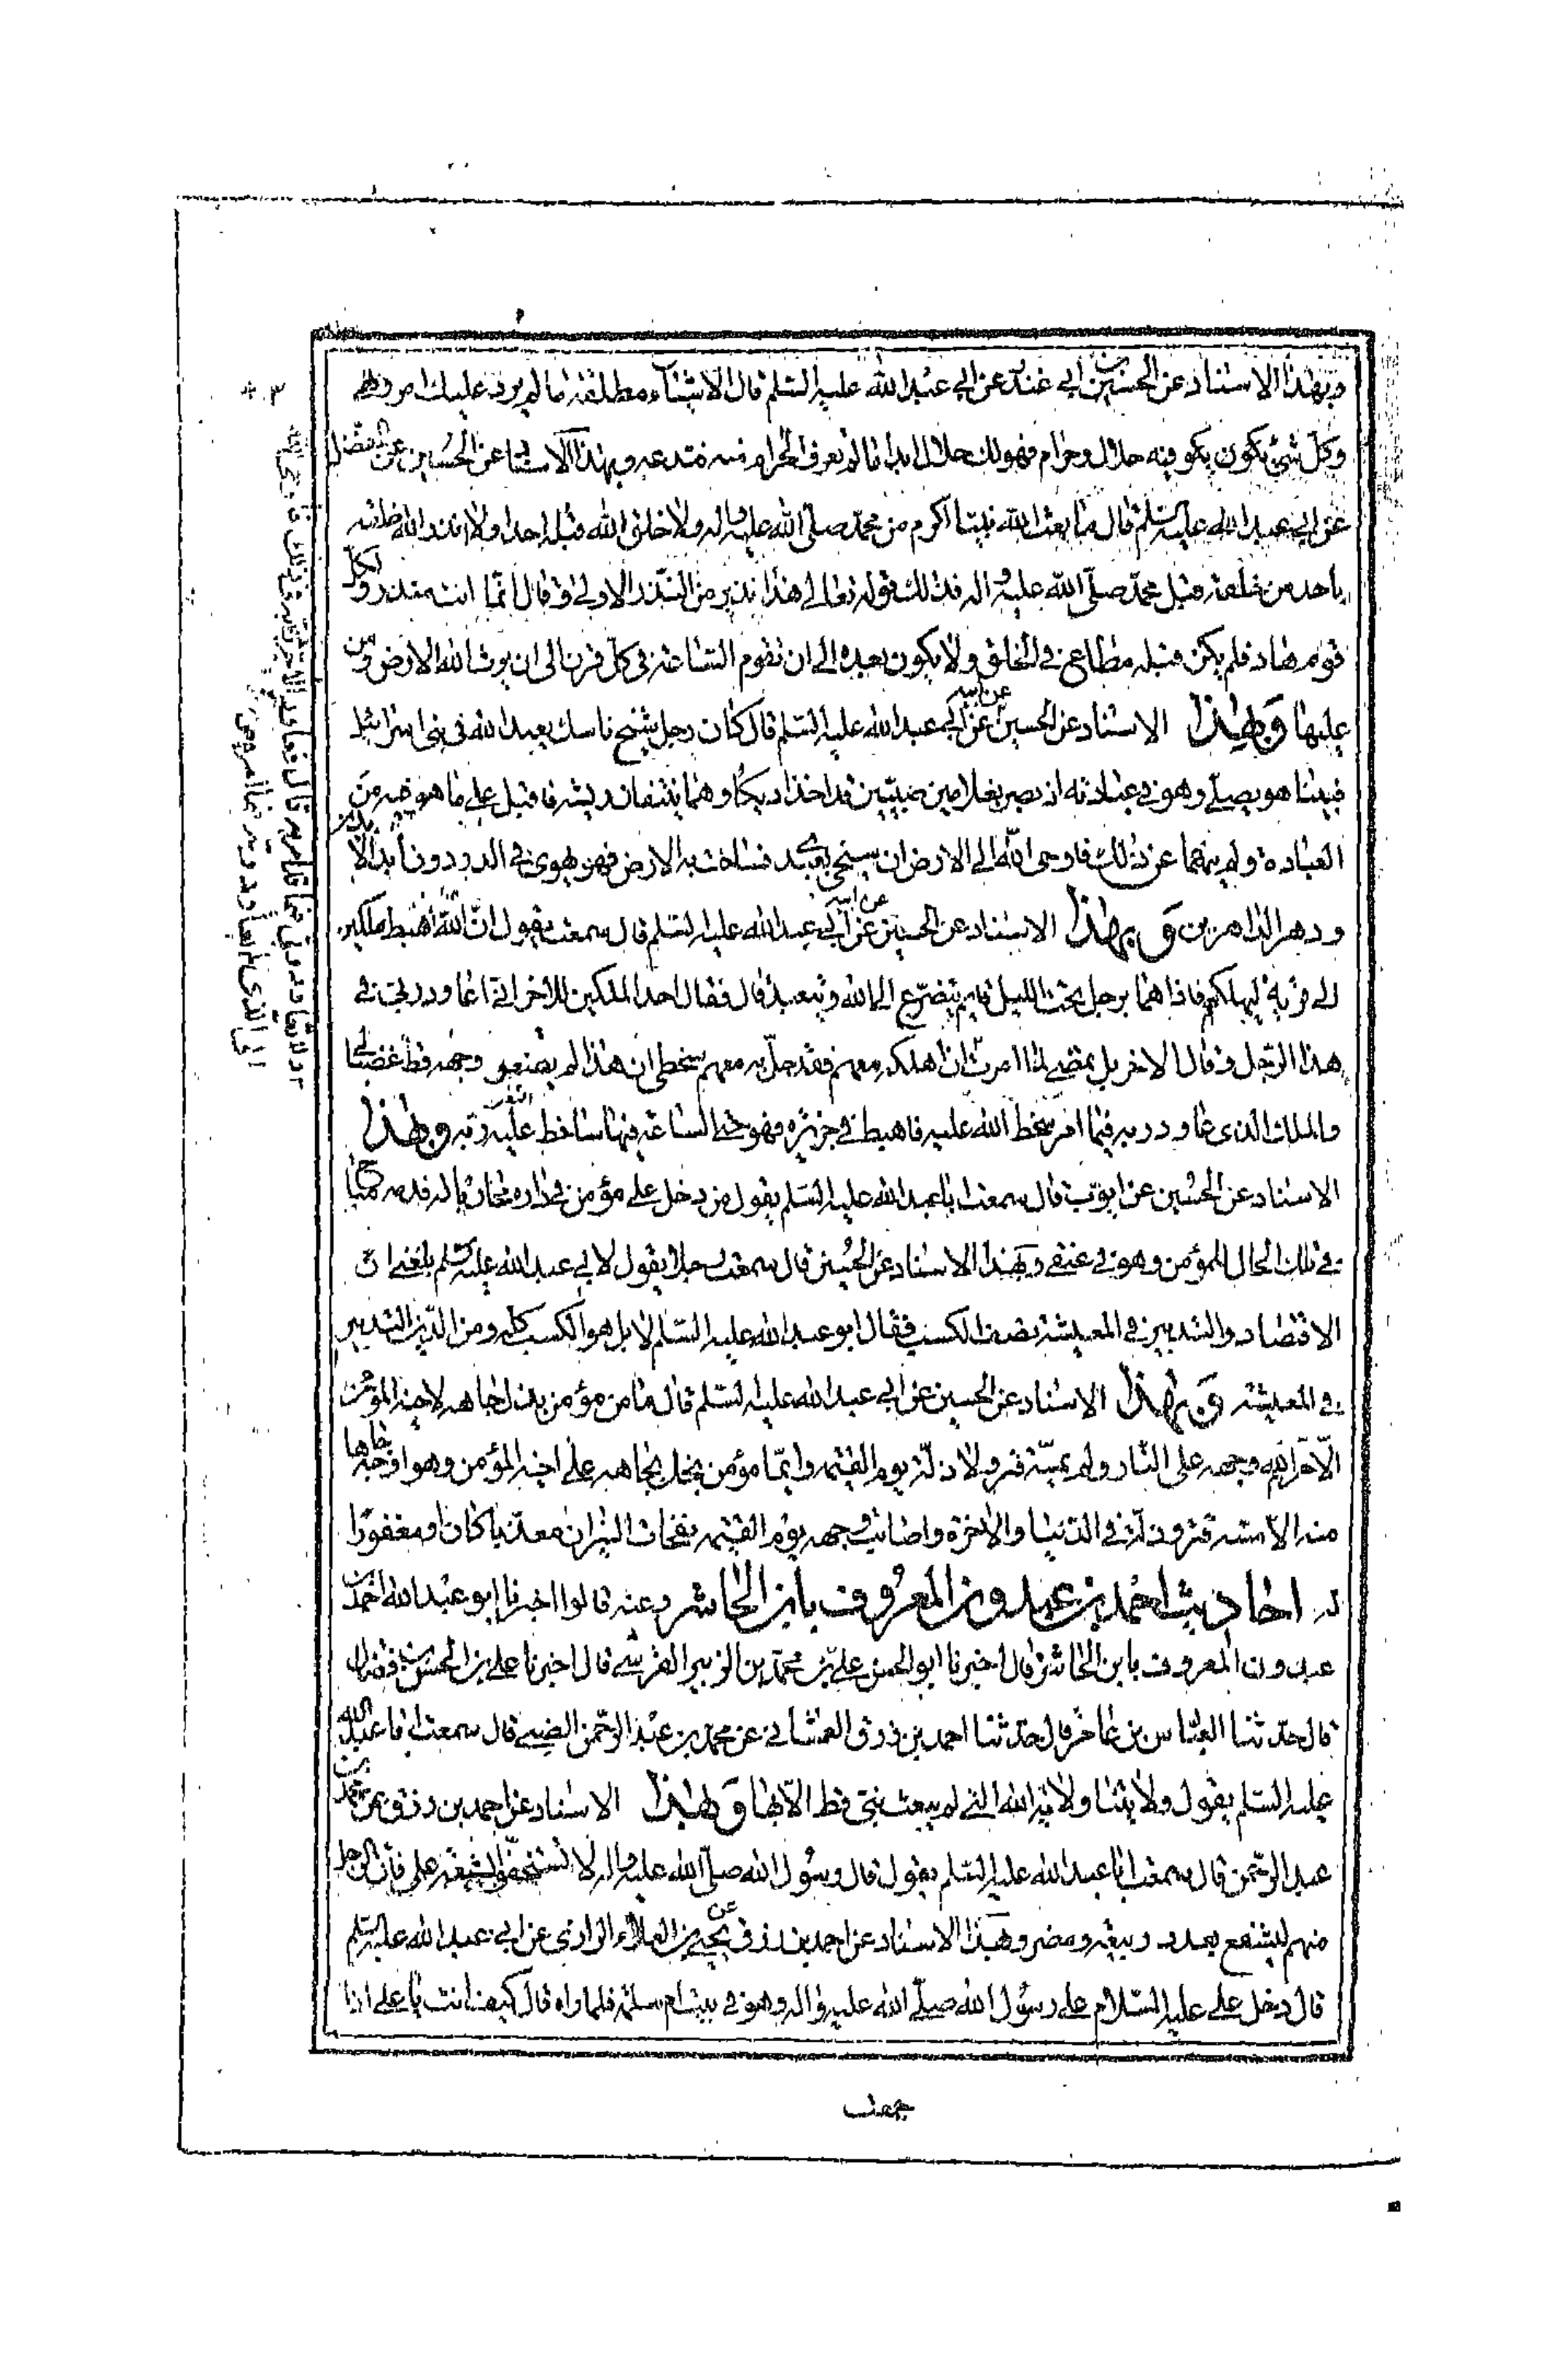 وبهذا الاسناد عن الحسين بن ابي غندر عن ابي عبد الله عليه السلم قال الاشياء مطلقة ما لم يرد عليك امر ونهى
وكل شئ يكون يكو فيه حلال وحرام فهو لك حلال ابدا ما لم تعرف الحرام منه فتدعه وبهذا الاسنا عن الحسين عن المفضل
عن ابي عبد الله عليه السلم قال ما بعث الله نبيا اكرم من محمد صلى الله عليه واله ولا خلق الله قبله احدا ولا انذر الله خلقه
باحد من خلقه قبل محمد صلى الله عليه واله فذلك قوله تعالى هذا نذير من النذر الاولى وقال انما انت منذر ولكل
قوم هاد فلم يكن قبله مطاع في الخلق ولا يكون بعده الى ان تقوم الساعة في كل قرن الى ان يرث الله الارض ومن
عليها وبهذا الاسناد عن الحسين عن ابيه عن ابي عبد الله عليه السلم قال كان رجل شيخ ناسك يعبد الله في بني اسرائيل
فبينا هو يصلى وهو في عبادته اذ بصر بغلامين صبيين قد اخذا ديكا وهما ينتفان ريشه فاقبل على ما هو فيه من
العبادة ولم ينههما عن ذلك فاوحى الله الى الارض ان سيخي بعبدي فساخت به الارض فهو يهوى في الدردون ابد الابدين
ودهر الداهرين وبهذا الاسناد عن الحسين عن ابيه عن ابي عبد الله عليه السلم قال سمعته يقول ان الله اهبط ملكين
الى قرية ليهلكهم فاذا هما برجل تحت الليل قايم يتضرع الى الله ويتعبد قال فقال احد الملكين للاخر اني اعاود ربي في
هذا الرجل وقال الاخر بل تمضى لما امرت ان اهلكه معهم فقد حل به معهم سخطي ان هذا لم يتمعر وجهه قط غضبا لى
والملك الذى عاود ربه فيما امر سخط الله عليه فاهبط في جزيرة فهو حتى الساعة فيها ساخط عليه ربه وبهذا
الاسناد عن الحسين عن ايوب قال سمعت ابا عبد الله عليه السلم يقول من دخل على مؤمن في داره محاربا له فدمه مباح
في تلك الحال للمؤمن وهو في عنقي وبهذا الاسناد عن الحسين قال سمعت رجلا يقول لابي عبد الله عليه السلم بلغني ان
الاقتصاد والتدبير في المعيشة نصف الكسب فقال ابو عبد الله عليه السلم لا بل هو الكسب كله ومن الدين التدبير
في المعيشة وبهذا الاسناد عن الحسين عن ابي عبد الله عليه السلم قال ما من مؤمن بذل جاهه لاخيه المؤمن
الا حرم الله وجهه على النار ولم يمسه قتر ولا ذلة يوم القيمة وايما مؤمن بخل بجاهه على اخيه المؤمن وهو اوجه جاها
منه الا مسه قتر وذلة في الدنيا والاخرة واصابت وجهه يوم القيمة نفحات النيران معذبا كان او مغفورا
له احاديث احمد بن عبدون المعروف بابن الحاشر وعنه قالوا اخبرنا ابو عبد الله احمد بن
عبدون المعروف بابن الحاشر قال اخبرنا ابو الحسن علي بن محمد بن الزبير القرشي قال اخبرنا علي بن الحسن بن فضال
قال حدثنا العباس بن عامر قال حدثنا احمد بن رزق الغمشاني عن محمد بن عبد الرحمن الضبي قال سمعت ابا عبد الله
عليه السلم يقول ولايتنا ولاية الله التي لم يبعث نبي قط الا بها وبهذا الاسناد عن احمد بن رزق عن محمد بن
عبد الرحمن قال سمعت ابا عبد الله عليه السلم يقول قال رسول الله صلى الله عليه واله لا تستخفوا بشيعة علي فان الرجل
منهم ليشفع بعدد ربيعة ومضر وبهذا الاسناد عن احمد بن رزق عن يحيى بن العلاء الرازي عن ابي عبد الله عليه السلم
قال دخل علي عليه السلام على رسول الله صلى الله عليه واله وهو في بيت ام سلمة فلما راه قال كيف انت يا علي اذا
جمعت